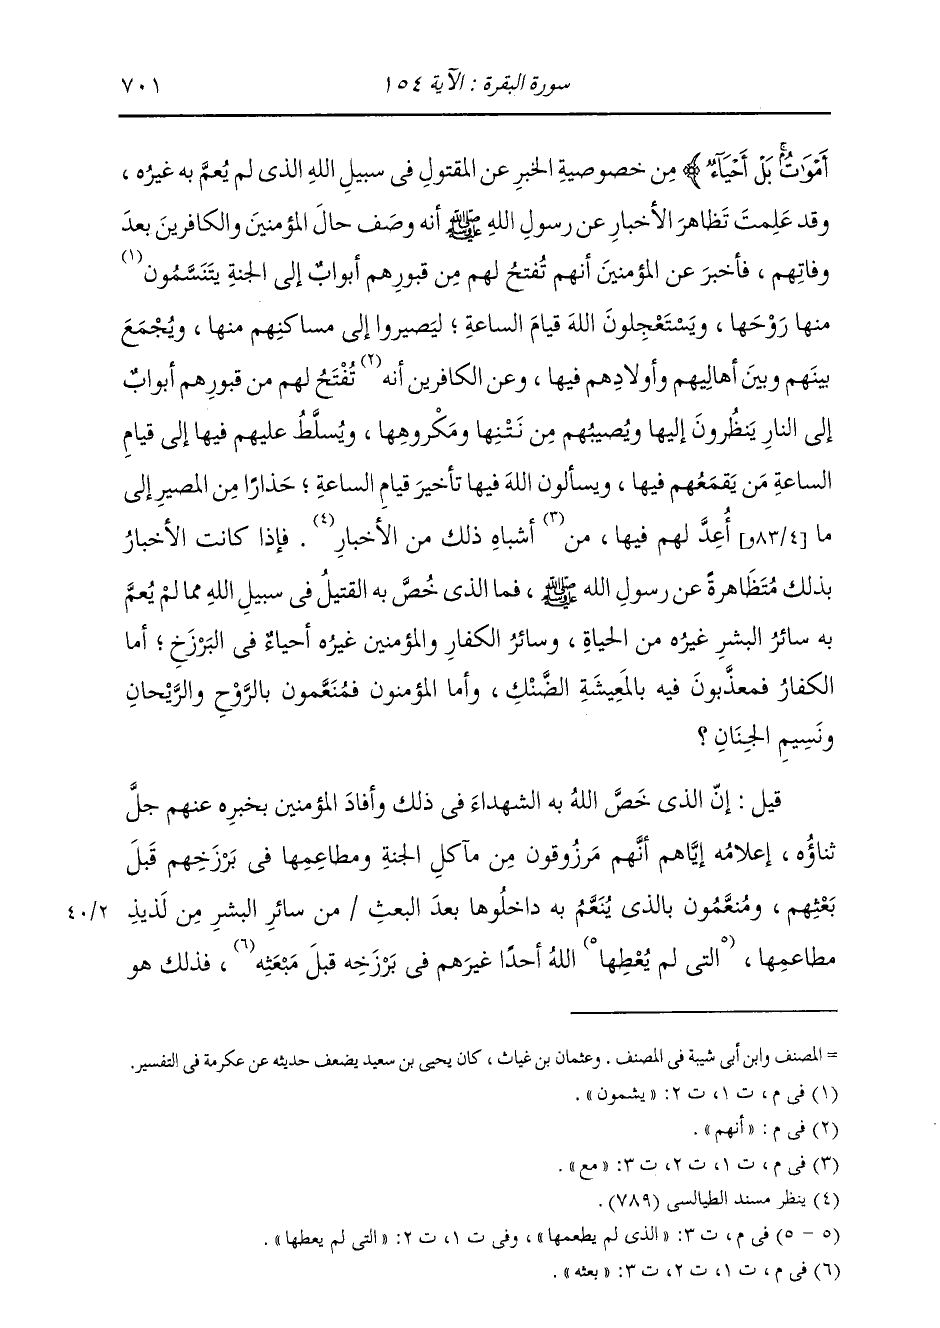 سورة البقرة : الآية ١٥٤
٧٠١
أَمْوَاتٌ بَلْ أَحْيَاءٌ ﴾ مِن خصوصيةِ الخبرِ عن المقتولِ فى سبيلِ اللهِ الذى لم يُعمَّ به غيرُه ،
وقد عَلِمتَ تَظاهرَ الأخبارِ عن رسولِ اللهِ ﷺ أنه وصَف حالَ المؤمنين والكافرين بعدَ
وفاتِهم ، فأخبرَ عن المؤمنين أنهم تُفتحُ لهم مِن قبورِهم أبوابٌ إلى الجنةِ يتَنَسَّمُون(١)
منها رَوْحَها ، ويَسْتَعْجِلونَ اللهَ قيامَ الساعةِ ؛ ليَصيروا إلى مساكنِهم منها ، ويُجْمَعَ
بينَهم وبينَ أهالِيهم وأولادِهم فيها ، وعن الكافرين أنه(٢) تُفْتَحُ لهم من قبورِهم أبوابٌ
إلى النارِ يَنظُرونَ إليها ويُصيبُهم مِن نَتْنِها ومَكْروهِها ، ويُسلَّطُ عليهم فيها إلى قيامِ
الساعةِ مَن يَقمَعُهم فيها ، ويسألون اللهَ فيها تأخيرَ قيامِ الساعةِ ؛ حَذارًا مِن المصيرِ إلى
ما [٨٣/٤و] أُعِدَّ لهم فيها ، من(٣) أشباهِ ذلك من الأخبارِ(٤) . فإذا كانت الأخبارُ
بذلك مُتَظَاهرةً عن رسولِ الله ﷺ ، فما الذى خُصَّ به القتيلُ فى سبيلِ اللهِ مما لمْ يُعمَّ
به سائرُ البشرِ غيرُه من الحياةِ ، وسائرُ الكفارِ والمؤمنين غيرُه أحياءٌ فى البَرْزَخِ ؛ أما
الكفارُ فمعذَّبونَ فيه بالمَعِيشَةِ الضَّنْكِ ، وأما المؤمنون فمُنَعَّمون بالرَّوْحِ والرَّيْحانِ
ونَسِيمِ الجِنَانِ ؟
قيل : إنّ الذى خَصَّ اللهُ به الشهداءَ فى ذلك وأفادَ المؤمنين بخبرِه عنهم جلَّ
ثناؤُه ، إعلامُه إيَّاهم أنَّهم مَرزُوقون مِن مآكلِ الجنةِ ومطاعِمِها فى بَرْزَخِهم قَبلَ
بَعْثِهم ، ومُنعَّمُون بالذى يُنَعَّمُ به داخلُوها بعدَ البعثِ / من سائرِ البشرِ مِن لَذيذِ
٤٠/٢
مطاعمِها ، (٥التى لم يُعْطِها٥) اللهُ أحدًا غيرَهم فى بَرْزَخِه قبلَ مَبْعَثِه(٦) ، فذلك هو
= المصنف وابن أبى شيبة فى المصنف . وعثمان بن غياث ، كان يحيى بن سعيد يضعف حديثه عن عكرمة فى التفسير.
(١) فى م ، ت ١، ت ٢: « يشمون » .
(٢) فى م : « أنهم » .
(٣) فى م ، ت ١، ت ٢، ت ٣: « مع » .
(٤) ينظر مسند الطيالسى (٧٨٩) .
(٥ - ٥) فى م ، ت ٣: « الذى لم يطعمها » ، وفى ت ١، ت ٢: « التى لم يعطها » .
(٦) فى م ، ت ١، ت ٢، ت ٣: « بعثه » .